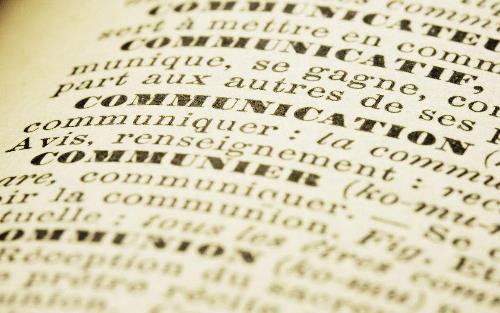 COMMUNICATEU
sert à mettre en comm
COMMUNICATIF,
munique, se gagne, con
part aux autres de ses
COMMUNICATION (
communiquer : la commu
Avis, renseignement : rec
COMMUNIER (ko-mu-n
are, communiquer. — Se
oir la communion. Fig. Et
tuelle : tous les êtres comm
OMMUNION (ko-mu
Réception du sacr
e prêtre récite